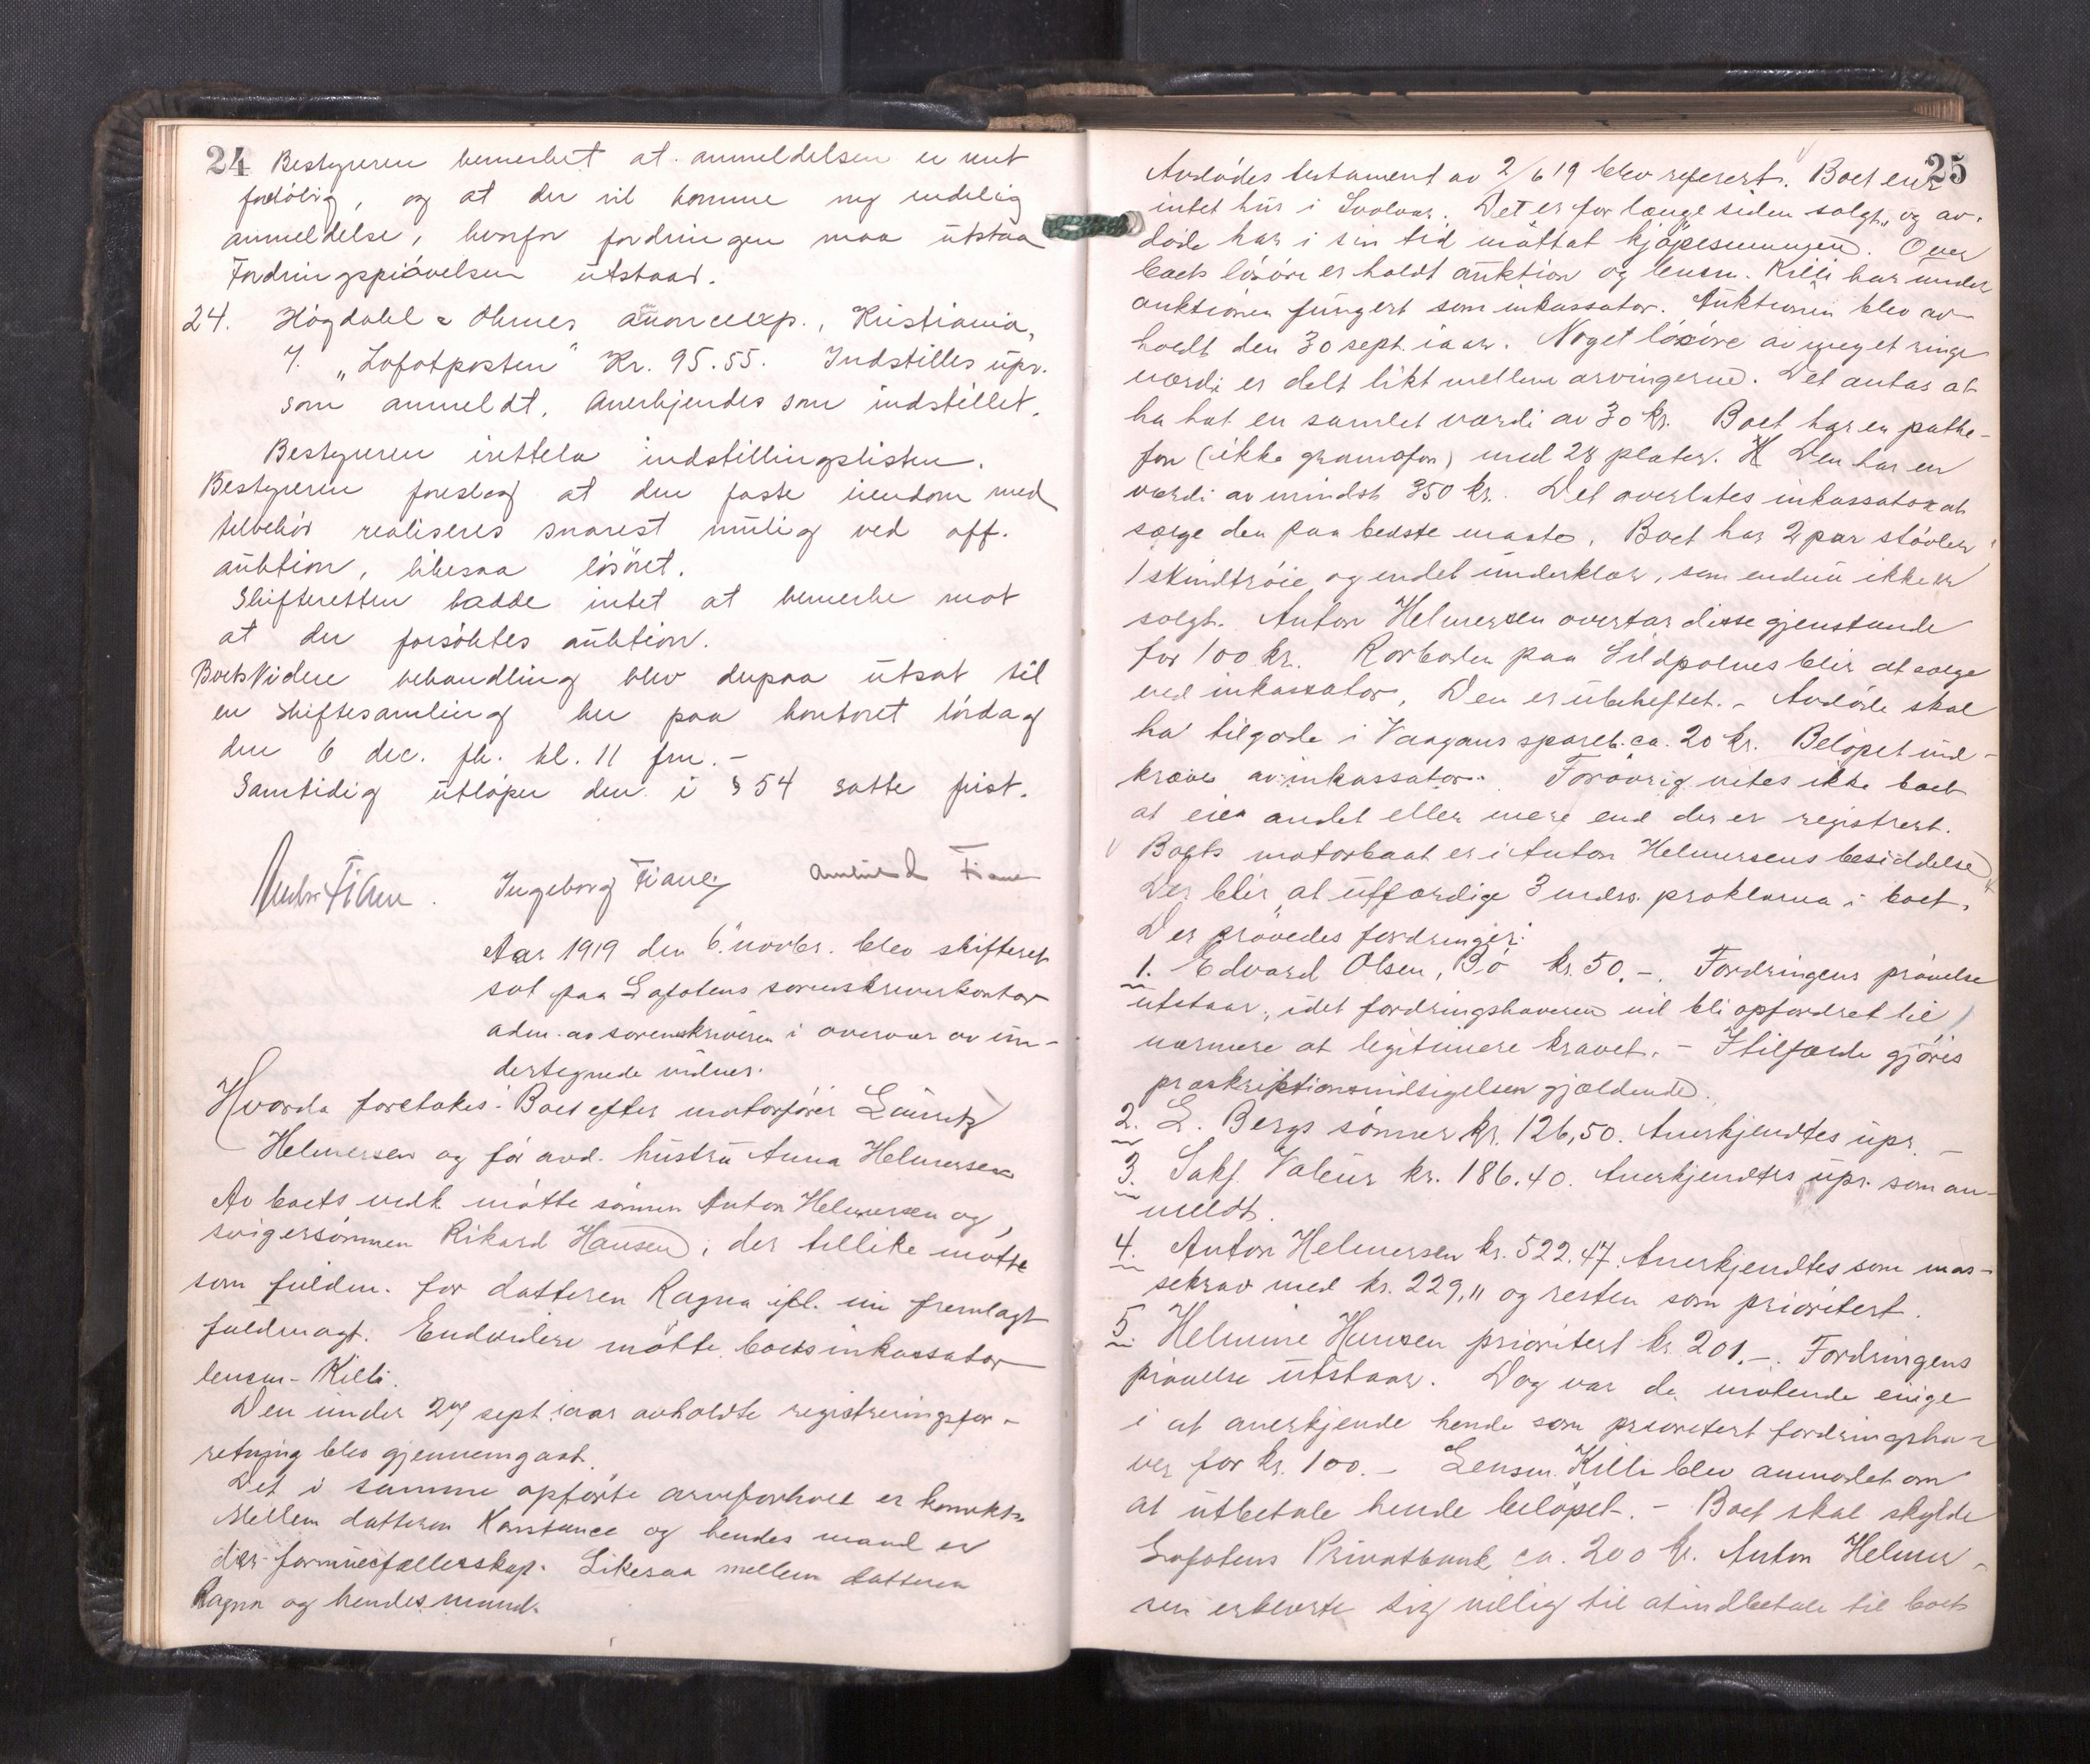 24 Bestyreren bemerket at anmeldelsen er kun
foreløbig, og at der vil komme ny endelig
anmeldelse, hvorfor fordringen maa utstaa
Fordringsprøvelsen utstaar.
24. Høgdahl & Ohmes annonceexp., Kristiania,
f. "Lofotposten" Kr. 95.55. Indstilles upr.
som anmeldt. Anerkjendes som indstillet.
Bestyreren irettela indstillingslisten.
Bestyreren foreslog at den faste eiendom med
tilbehør realiseres snarest mulig ved off.
auktion, likesaa løsøret.
Skifteretten hadde intet at bemerke mot
at der forsøktes auktion.
Boets videre behandling blev derpaa utsat til
en skiftesamling her paa kontoret lørdag
den 6 dec. fk. kl. 11 fm. -
Samtidig utløper den i § 54 satte frist.
Ingeborg Fiane
Aar 1919 den 6. novbr. blev skifteret
sat paa Lofotens sorenskriverkontor
adm. av sorenskriveren i overvær av un-
dertegnede vidner.
Hvorda foretokes: Boet efter motorfører Lauritz
Helmersen og før avd. hustru Anna Helmersen
Av boets vedk møtte sønnen Anton Helmersen og
svigersønnen Rikard Hansen, der tillike møtte
som fuldm. for datteren Ragna ifl. nu fremlagt
fuldmagt. Endvidere møtte boets inkassator
lensm. Killi.
Den under 27 sept. iaar avholdte registreringsfor-
retning blev gjennemgaat.
Det i samme opførte arveforhold er korrekt.
Mellem datteren Konstance og hendes mand er
der formuesfællesskap. Likesaa mellem datteren
Ragna og hendes mand.
25
Avdødes testament av 2/6 19 blev referert. Boet eier
intet hus i Svolvær. Det er for længe siden solgt, og av-
døde har i sin tid mottat kjøpesummen. Over
boets løsøre er holdt auktion og lensm. Killi har under
auktionen fungert som inkassator. Auktionen blev av-
holdt den 30 sept. iaar. Noget løsøre av meget ringe
værdi er delt likt mellem arvingerne. Det antas at
ha hat en samlet værdi av 30 kr. Boet har en pathe-
fon (ikke gramofon) med 28 plater. Den har en
værdi av mindst 350 kr. Det overlates inkassator at
sælge den paa bedste maate. Boet har 2 par støvler
1 skindtrøie og endel underklær, som endnu ikke er
solgt. Anton Helmersen overtar disse gjenstande
for 100 kr. Rorboden paa Sildpolnes blir at sælge
ved inkassator. Den er ubeheftet. - Avdøde skal
ha tilgode i Vaagans spareb. ca. 20 kr. Beløpet ind-
kræves av inkassator. Forøvrig vites ikke boet
at eie andet eller mere end der er registrert.
Boets motorbaat er i Anton Helmersens besiddelse
Der blir at utfærdige 3 mdrs. proklama i boet.
Der prøvedes fordringer:
1. Edvard Olsen, Bø kr. 50.-. Fordringens prøvelse
utstaar, idet fordringshaveren vil bli opfordret til
nærmere at legitimere kravet. - I tilfælde gjøres
præskriptionsindsigelsen gjældende.
2. L. Bergs sønner kr. 126,50. Anerkjendtes upr. -
3. Sakf. Valeur kr. 186.40. Anerkjendtes upr. som an-
meldt.
4. Anton Helmersen kr. 522.47. Anerkjendtes som mas-
sekrav med kr. 229,11 og resten som prioritert.
5. Helmine Hansen prioritert kr. 201.-. Fordringens
prøvelse utstaar. Dog var de møtende enige
i at anerkjende hende som prioritert fordringsha-
ver for kr. 100.- Lensm. Killi blev anmodet om
at utbetale hende beløpet. - Boet skal skylde
Lofotens Privatbank ca. 200 kr. Anton Helmer-
sen erklærte sig villig til at indbetale til boets